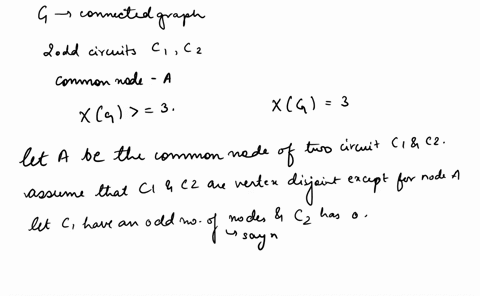 G → connected graph
2 odd circuits C1, C2
common node - A
X(G) >= 3. X(G) = 3
let A be the common node of two circuit C1 & C2.
assume that C1 & C2 are vertex disjoint except for node A
let C1 have an odd no. of nodes & C2 has o.
↳ say n